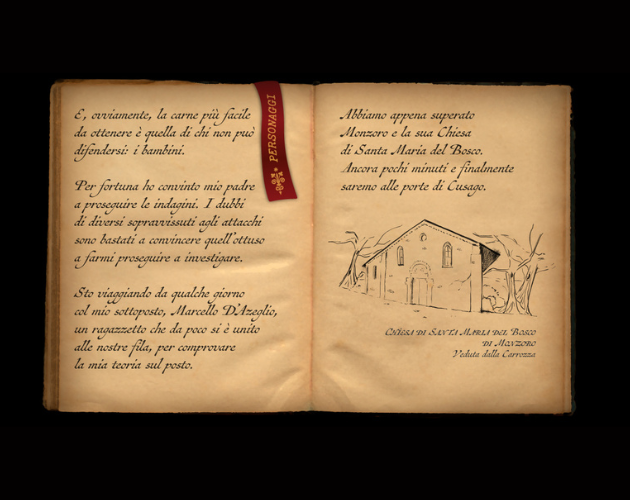 E, ovviamente, la carne più facile
da ottenere è quella di chi non può
difendersi: i bambini.
Per fortuna ho convinto mio padre
a proseguire le indagini. I dubbi
di diversi sopravvissuti agli attacchi
sono bastati a convincere quell'ottuso
a farmi proseguire a investigare.
Sto viaggiando da qualche giorno
col mio sottoposto, Marcello D'Azeglio,
un ragazzetto che da poco si è unito
alle nostre fila, per comprovare
la mia teoria sul posto.
PERSONAGGI
Abbiamo appena superato
Monzoro e la sua Chiesa
di Santa Maria del Bosco.
Ancora pochi minuti e finalmente
saremo alle porte di Cusago.
CHIESA DI SANTA MARIA DEL BOSCO
DI MONZORO
Veduta dalla Carrozza